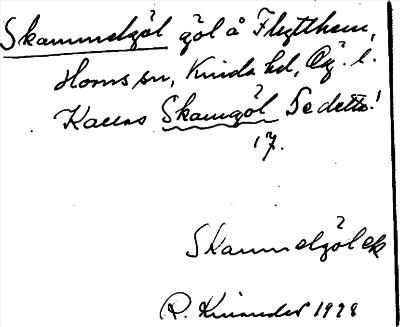 Skammelgöl göl å Flytthem,
Horns sn, Kinda hd, Ög. l.
Kallas Skamgöl Se detta!
17.
Skammelgölek
R. Kinander 1928